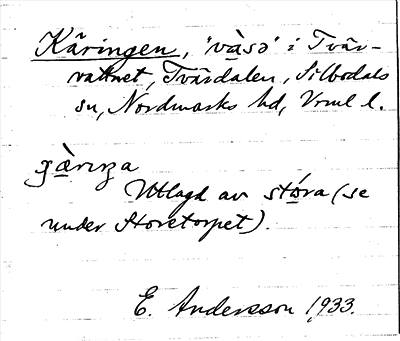 Käringen, "vàsə" i Tvär-
vattnet, Tvärdalen, Silbodals
sn, Nordmarks hd, Vrml l.
Utlagd av stóra (se
under Storetorpet).
E. Andersson 1933.